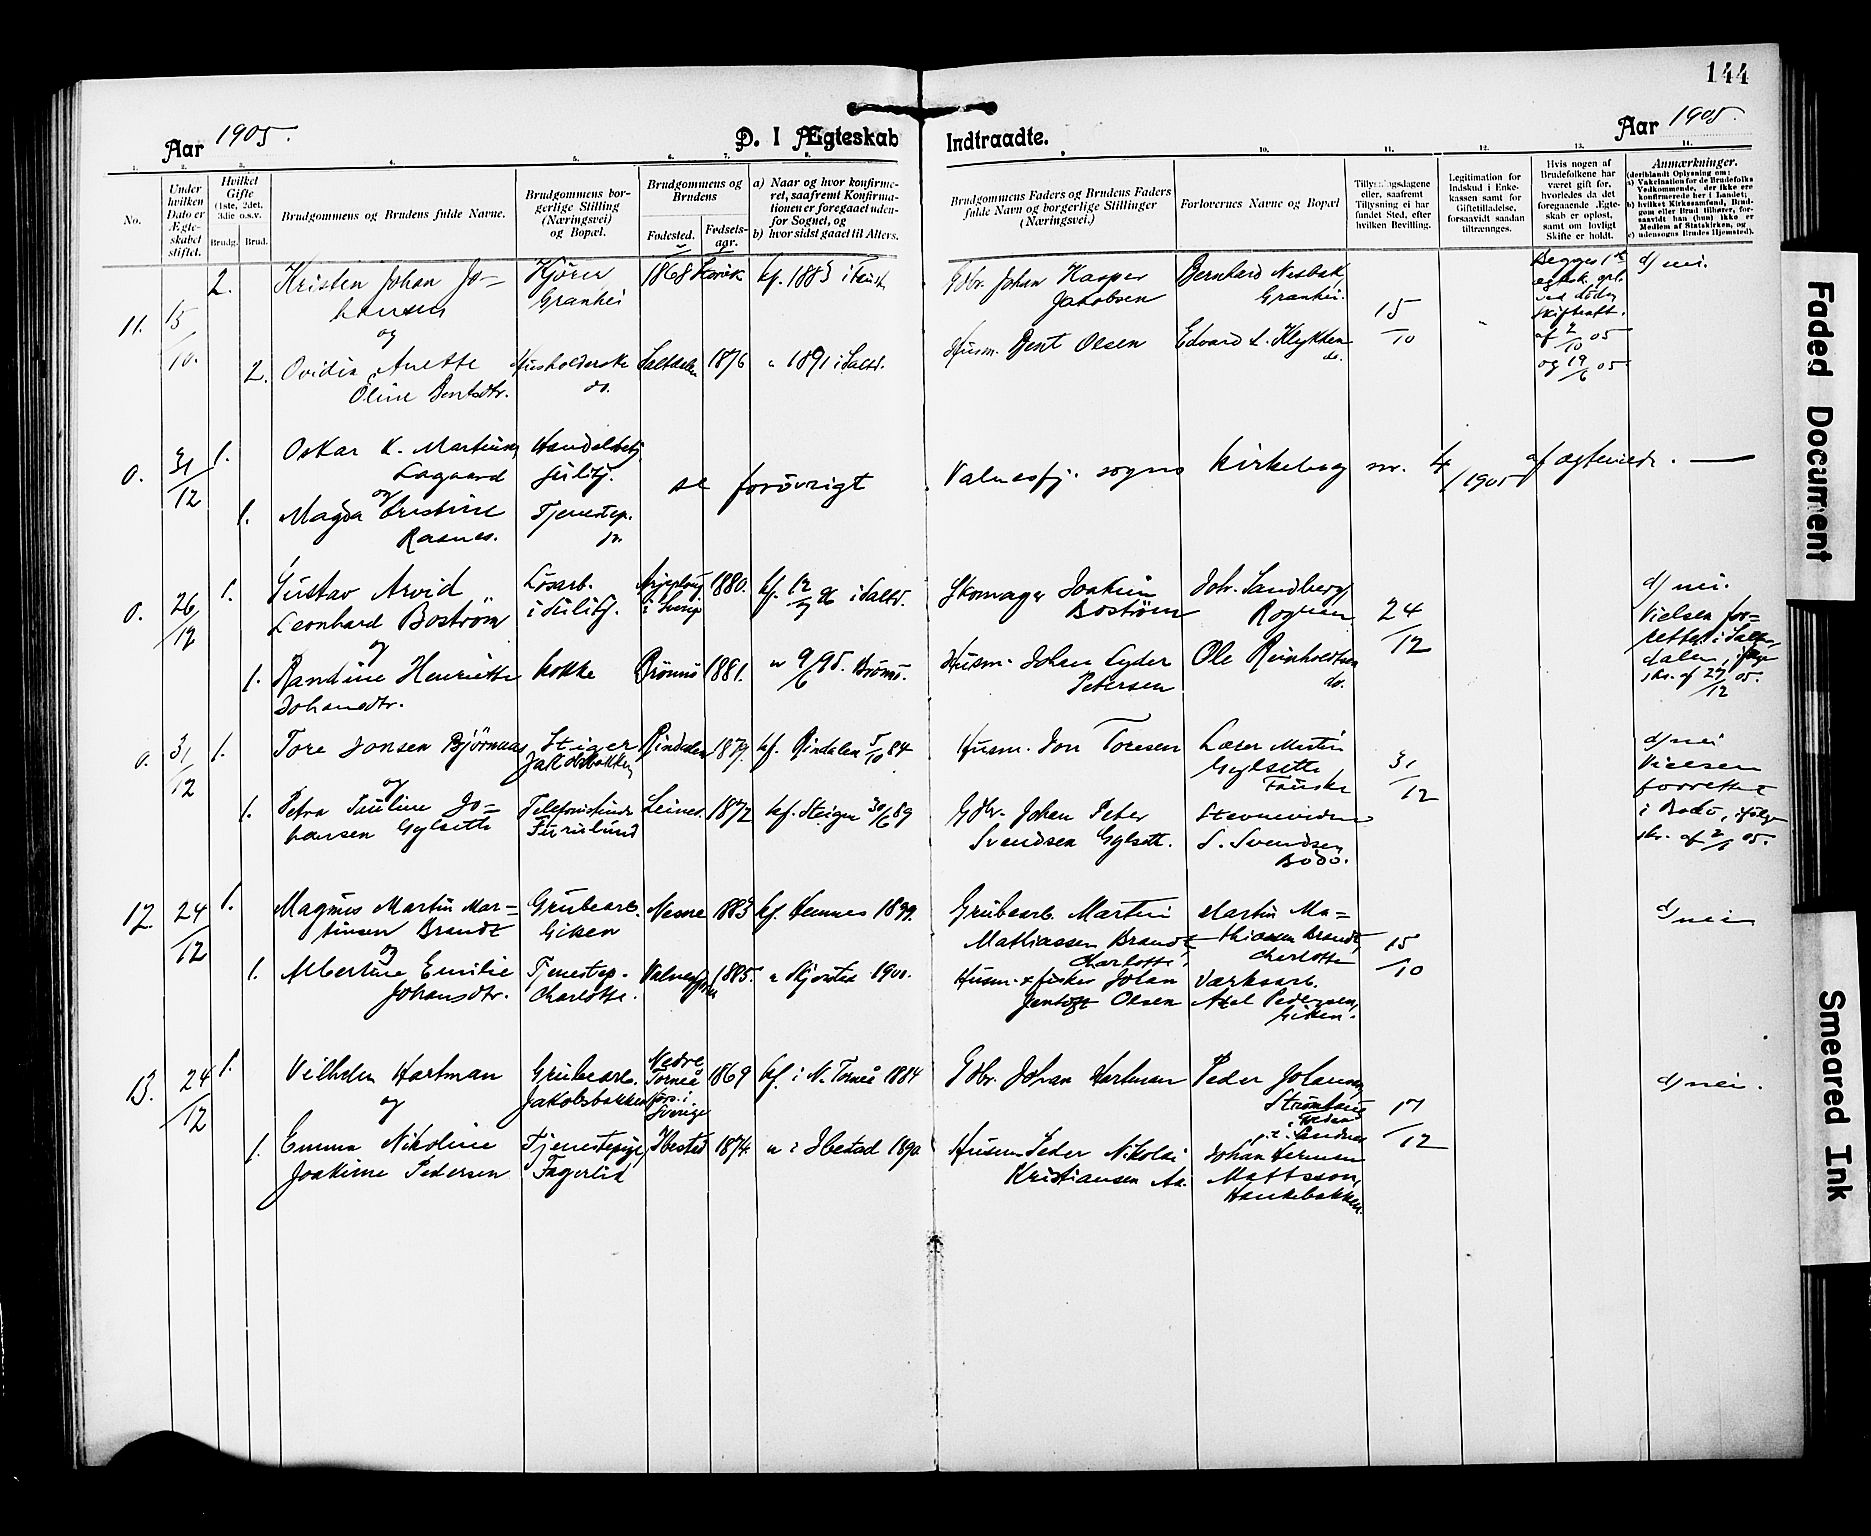 144
Aar 1905.
D. I Ægteskab Indtraadte.
Aar 1905.
1. 2. 3. 4. 5. 6. 7. 8. 9 10. 11. 12. 13. 14.
No.
Under hvilken Dato er Ægteskabet stiftet.
Hvilket Gifte (1ste, 2det, 3die o.s.v.
Brudg. Brud.
Brudgommens og Brudens fulde Navne.
Brudgommens borgerlige Stilling (Næringsvei) og Bopæl.
Brudgommens og Brudens
Fødested. Fødselsaar.
a) Naar og hvor konfirmeret, saafremt Konfirmationen er foregaaet udenfor Sognet, og
b) hvor sidst gaaet til Alters.
Brudgommens Faders og Brudens Faders fulde Navn og borgerlige Stillinger (Næringsvei.)
Forlovernes Navne og Bopæl
Tillysningsdagene eller, saafremt Tillysning ei har fundet Sted, efter hvilken Bevilling.
Legitimation for Indskud i Enkekassen samt for Giftetilladelse, forsaavidt saadan tiltrænges.
Hvis nogen af Brudefolkene har været gift før, hvorledes da det foregaaende Ægteskab er opløst, samt om lovligt Skifte er holdt.
Anmærkninger.
(deriblandt Oplysning om:
a) Vakcination for de Brudefolks Vedkommende, der ikke ere konfirmerede her i Landet;
b) hvilket Kirkesamfund, Brudgom eller Brud tilhører, forsaavidt han (hun) ikke er Medlem af Statskirken, og
c) udensogns Brudes Hjemsted).
11. 15/10. 2. Kristen Johan Johansen
og
Kjører
Grønhei
1868
kf. 1883
Gdbr. Johan Kasper
Jakobsen
Bernhard Nesbak,
Grønhei.
15/10
Begges 1ste
ved døden
skifteatt.
af 2/10 05
og 19/6 05.
d) nei.
2. Ovidia Anette
Oline Bentsdtr.
Husholderske
do.
Saltdalen 1876 " 1891 i Saltd.
Husm. Bent Olsen
Edvard L. Klykken
do.
0. 31/12 1. Oskar K. Martinus
Lagaard
og
Handelsbetj.
Sulitj.
1. Magda Kristine
Rosnes.
Tjenestep.
se forøvrigt Valnesfj. sogns kirkebog nr. 4/1905 af ægteviede.
0. 26/12 1. Gustav Arvid
Leonhard Boström
og
Løsarb.
i Sulitj.
Arjeploug
1880. kf. i Saltd.
Skomager Joakim
Boström
Joh. Sandberg
Rognan
24/12
d) nei.
Vielsen forrettet i Saltdalen, ifølge
skr. af 27/12 05.
1. Randine Henriette
Johansdtr.
kokke Brønnø 1881. " 9/6 95. Brønnø.
Husm. Johan Eyder
Petersen
Ole Reinholdtsen
do.
0. 31/12 1. Tore Jonsen Bjørnaas
og
Stiger
Jakobsbakken
Rindalen 1879. kf. Rindalen 5/10 84
Husm. Jon Toresen
Laser Martin
Gylseth
Fauske
31/12
d) nei
Vielsen
forrettet
i Bodø, ifølge
skr. af 2/1 05.
1. Petra Pauline Johansen Gylseth
Furulund
Leines. 1872 kf. Steigen 30/6 89
Gdbr. Johan Peter
Svendsen Gylseth.
Stevnevidne
S. Svendsen
Bodø.
12. 24/12 1. Magnus Martin Martinsen Brandt
og
Grubearb.
Giken
Nesne 1883 kf. Hemnes 1899.
Grubearb. Martin
Mathiassen Brandt
Charlotte.
Martin Mathiassen Brandt,
Charlotte
15/10
d) nei
1. Albertine Emilie
Johansdtr.
Tjenestep.
Charlotte.
Valnesfjord 1885. " Skjerstad 1900.
Husm. & fisker Johan
Jentoft Olsen
Værksarb.
Axel Pedersen,
Giken.
13. 24/12 1. Vilhelm Hartman
og
Grubearb.
Jakobsbakken
Nedre
Torneå
i
Sverige
1869 kf. i N. Torneå 1884
Gdbr. Johan Hartman
Peder Johannes
17/12
d) nei.
1. Emma Nikoline
Joakime Pedersen
Tjenestepige,
Fagerlid
Ibestad 1874. " i Ibestad 1890.
Husm. Peder Nikolai
Kristiansen Aa.
Johan Herman
Mattsson,
Hankabakken.
Faded Document
Smeared Ink